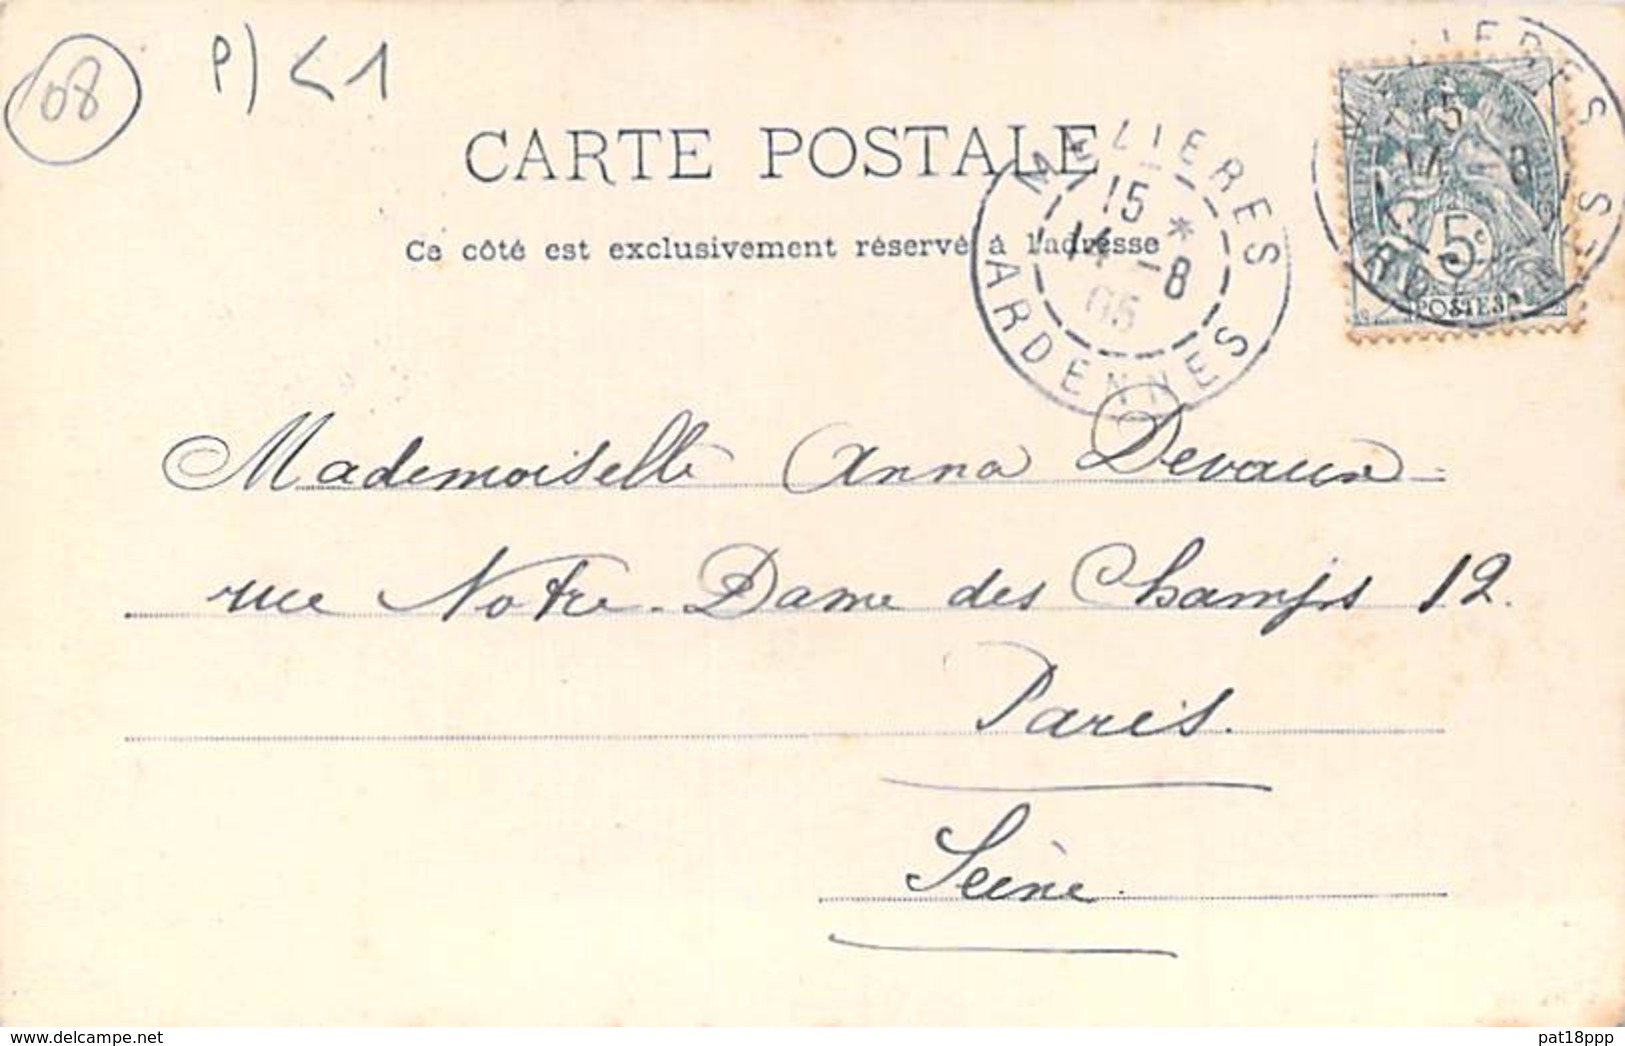 08
P) < 1
CARTE POSTALE
Ce côté est exclusivement réservé à l'adresse
MÉZIÈRES
15 *
14 -8
05
ARDENNES
5c
POSTES
Mademoiselle Anna Devaux
rue Notre-Dame des Champs 12.
Paris.
Seine.
Delcampe.net
pat18ppp